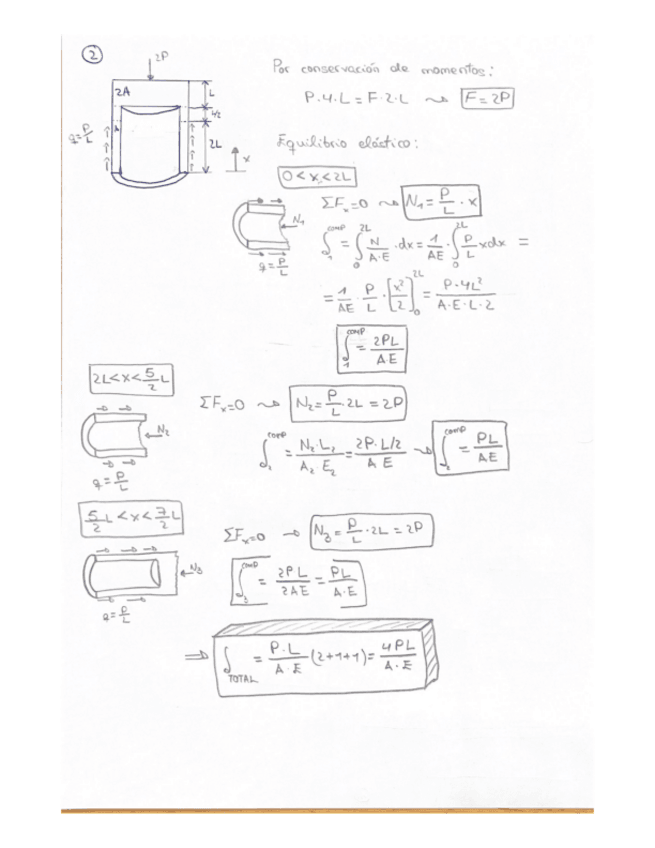 2
2P
2A
L
L/2
A
2L
q=P/L
x
Por conservación de momentos:
P·4·L = F·2·L ⇝ F=2P
Equilibrio elástico:
0<x<2L
ΣFx=0 ⇝ N1 = P/L · x
N1
q=P/L
δ1^comp = ∫0^2L N/(A·E) · dx = 1/AE · ∫0^2L P/L xdx =
= 1/AE · P/L · [x²/2]0^2L = P·4L²/(A·E·L·2)
δ1^comp = 2PL/(A·E)
2L<x<5/2 L
ΣFx=0 ⇝ N2 = P/L · 2L = 2P
N2
q=P/L
δ2^comp = N2·L2/(A2·E2) = 2P·L/2/(A E) ⇝ δ2^comp = PL/AE
5/2 L<x<7/2 L
ΣFx=0 → N3 = P/L · 2L = 2P
N3
q=P/L
δ3^comp = 2PL/2AE = PL/(A·E)
⇒ δTOTAL = P·L/(A·E) (2+1+1) = 4PL/(A·E)